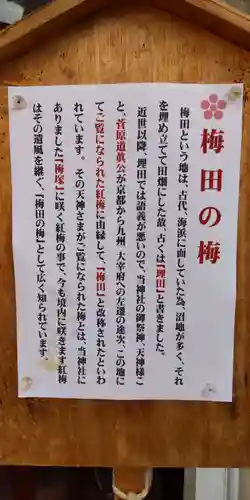 梅田の梅
梅田という地は、古代、海浜に面していた為、沼地が多く、それ
を埋め立てて田畑にした故、古くは『埋田』と書きました。
近世以降、埋田では語義が悪いので、当神社の御祭神、天神様こ
と、菅原道眞公が京都から九州 大宰府への左遷の途次、この地に
てご覧になられた紅梅に由縁して、『梅田』と改称されたといわ
れています。その天神さまがご覧になられた梅とは、当神社に
ありました『梅塚』に咲く紅梅の事で、今も境内に咲きます紅梅
はその遺風を継ぐ、「梅田の梅」として広く知られています。